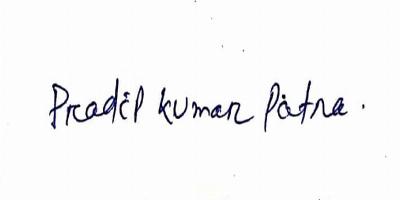 Pradip kumar Patra.